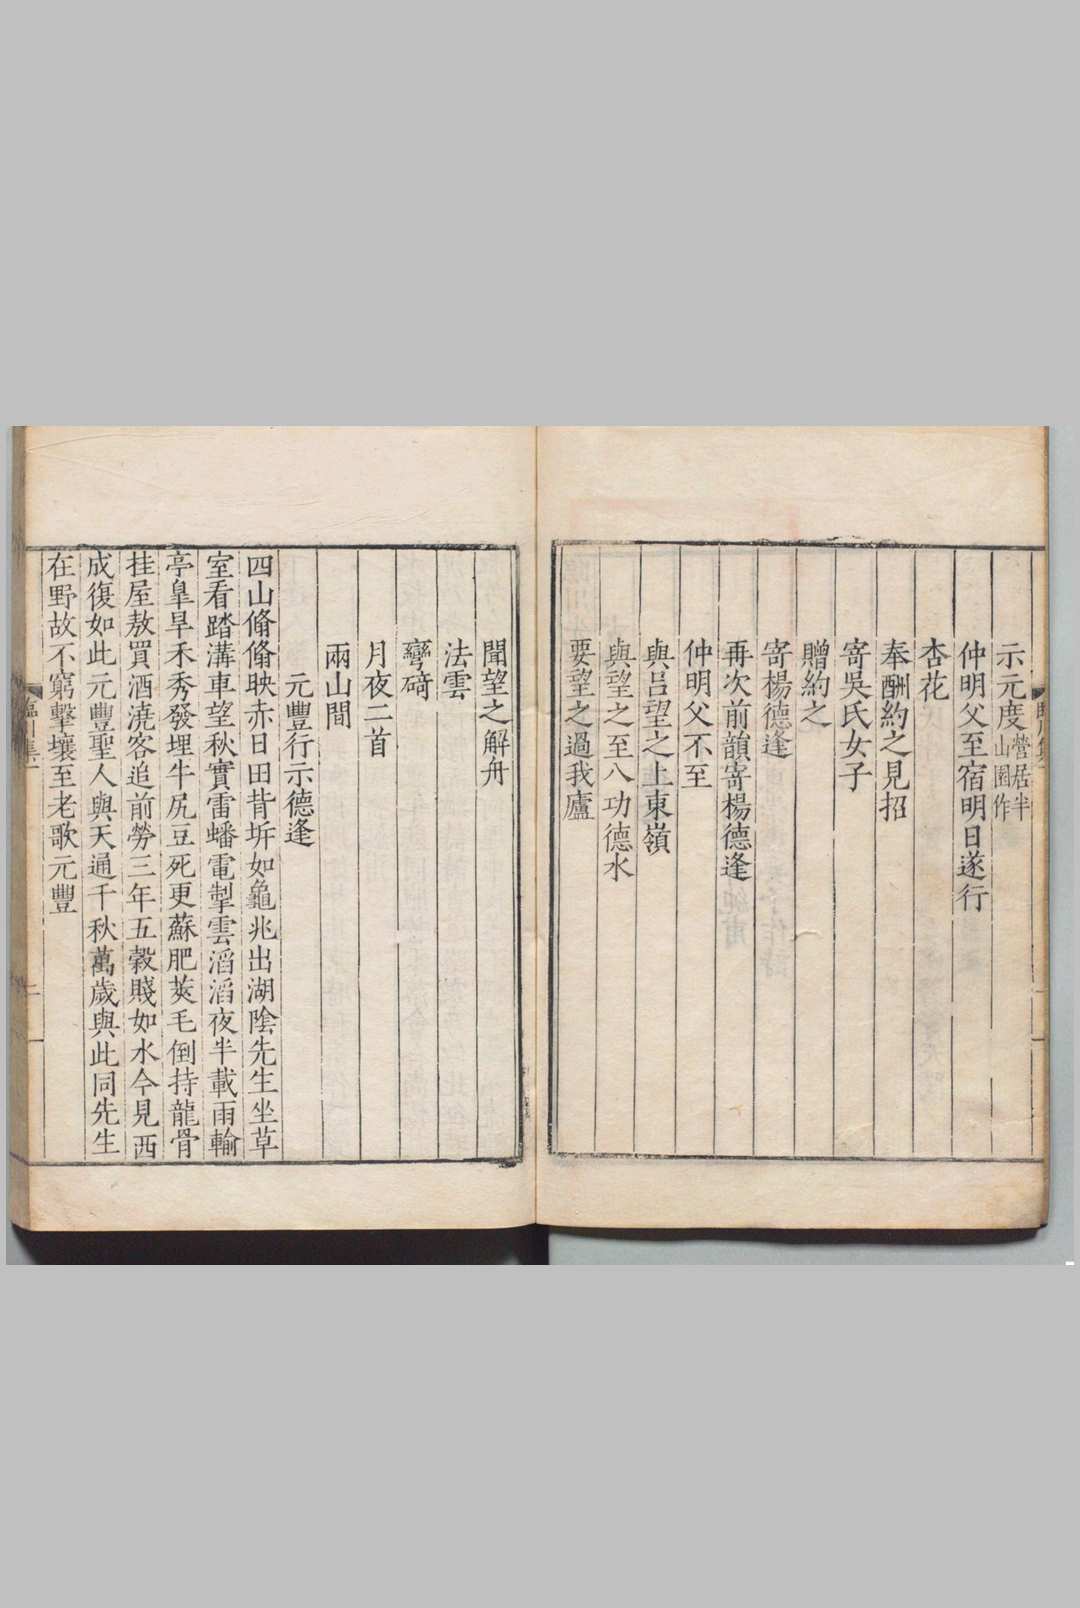 示元度營居半山園作
仲明父至宿明日遂行
杏花
奉酬約之見招
寄吳氏女子
贈約之
寄楊德逢
再次前韻寄楊德逢
仲明父不至
與呂望之上東嶺
與望之至八功德水
要望之過我廬
聞望之解舟
法雲
彎碕
月夜二首
兩山間
元豐行示德逢
四山翛翛映赤日田背坼如龜兆出湖陰先生坐草
室看踏溝車望秋實雷蟠電掣雲滔滔夜半載雨輸
亭皐旱禾秀發埋牛尻豆死更蘇肥莢毛倒持龍骨
挂屋敖買酒澆客追前勞三年五榖賤如水今見西
成復如此元豐聖人與天通千秋萬歲與此同先生
在野故不窮擊壤至老歌元豐
臨川集一